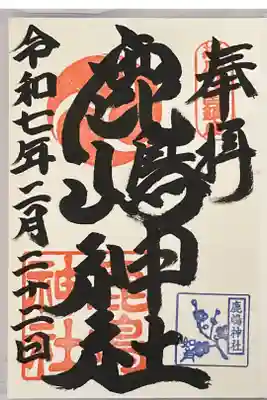 奉拝
鹿嶋神社
令和七年二月二十二日
鹿嶋神社
鹿島神社